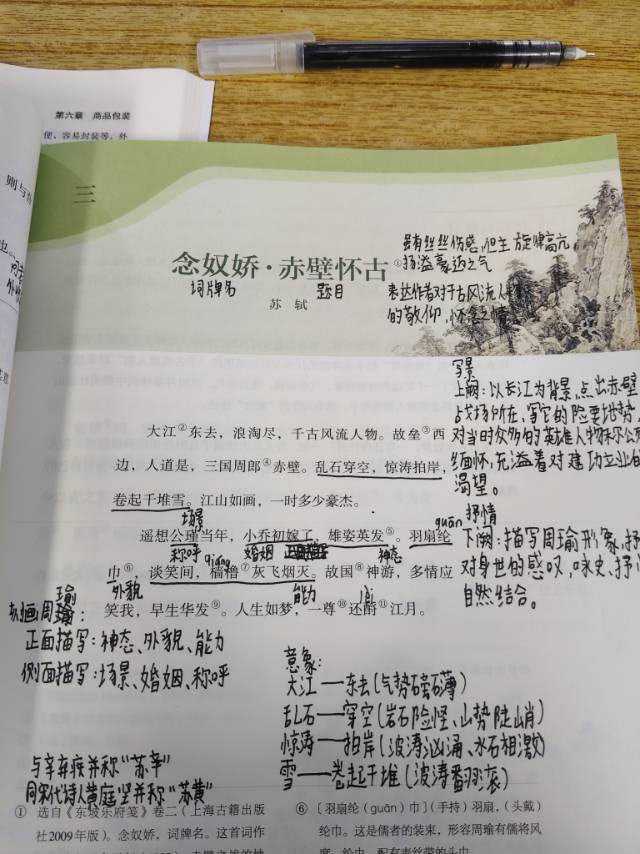 第六章 商品包装
便、容易封装等。外
则与
三
虽有丝丝伤感,但主旋律高亢,
念奴娇·赤壁怀古①
扬溢豪迈之气
词牌名 题目
苏轼
表达作者对于古风流人物
的敬仰,怀念之情
写景
上阙:以长江为背景,点出赤壁
战场所在,写它的险要地势,
对当时众多的英雄人物和尔公瑾
缅怀,充溢着对建功立业的
渴望。
大江②东去,浪淘尽,千古风流人物。故垒③西
边,人道是,三国周郎④赤壁。乱石穿空,惊涛拍岸,
卷起千堆雪。江山如画,一时多少豪杰。
场景
guān 抒情
遥想公瑾当年,小乔初嫁了,雄姿英发⑤。羽扇纶
称呼 qiáng 婚姻 神态
巾⑥,谈笑间,樯橹⑦灰飞烟灭。故国⑧神游,多情应
外貌 能力
笑我,早生华发⑨。人生如梦,一尊⑩还酹⑪江月。
下阙:描写周瑜形象,抒
对身世的感叹,咏史、抒
自然结合。
瑜
刻画周瑜:
正面描写:神态、外貌、能力
侧面描写:场景、婚姻、称呼
意象:
大江——东去(气势磅礴)
乱石——穿空(岩石险怪、山势陡峭)
惊涛——拍岸(波涛汹涌、水石相激)
雪——卷起千堆(波涛翻滚)
与辛弃疾并称“苏辛”
同宋代诗人黄庭坚并称“苏黄”
① 选自《东坡乐府笺》卷二(上海古籍出版
社2009年版)。念奴娇,词牌名。这首词作
⑥ 〔羽扇纶(guān)巾〕(手持)羽扇,(头戴)
纶巾。这是儒者的装束,形容周瑜有儒将风
度。纶巾,配有青丝带的头巾